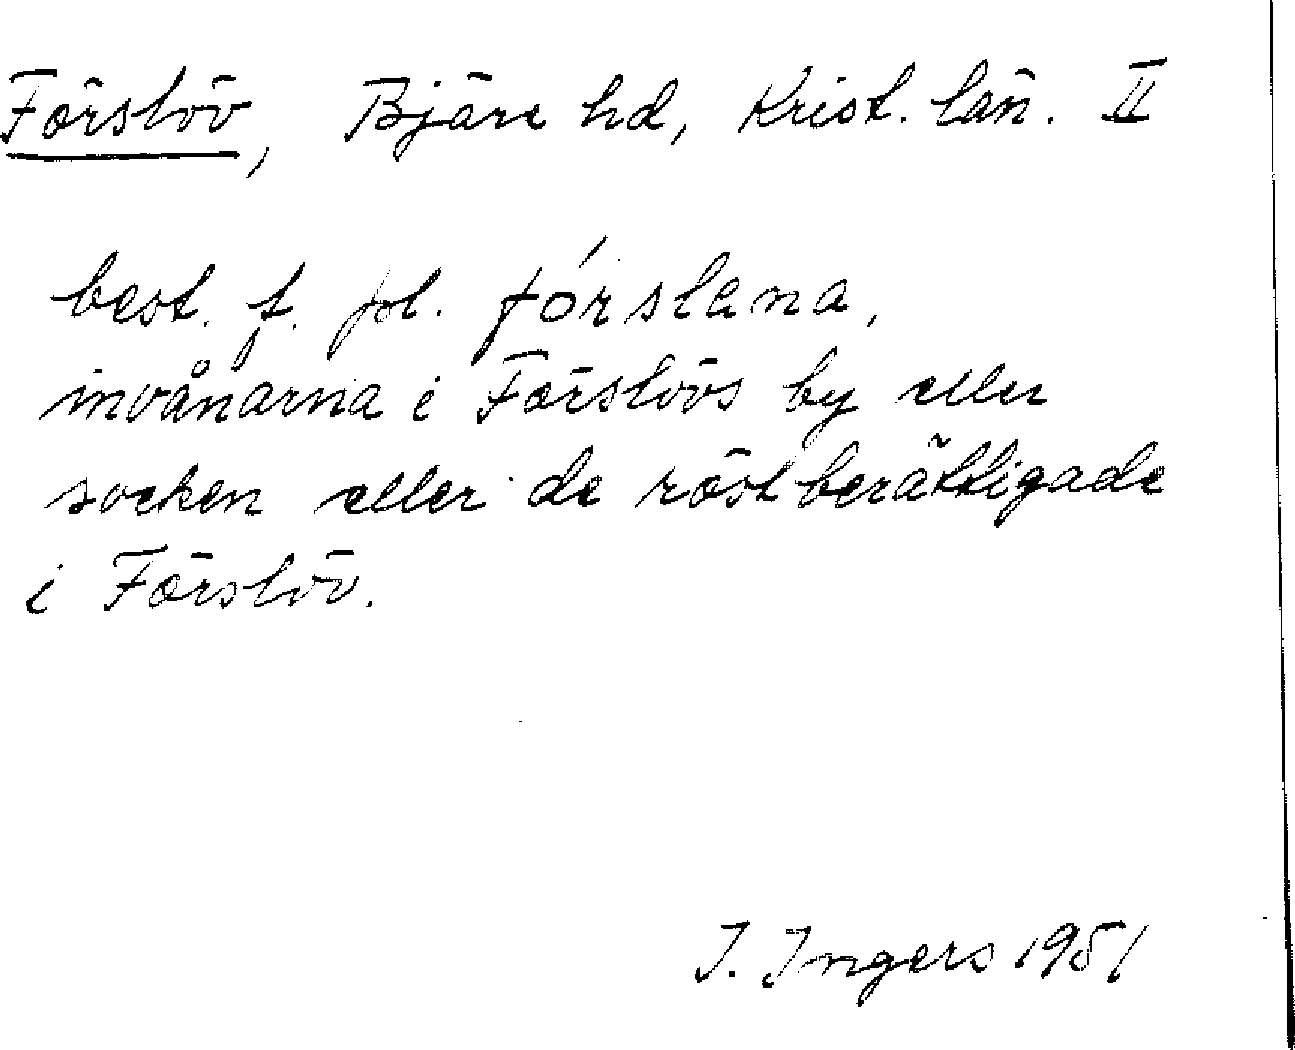 Förslöv, Bjäre hd, Krist. län. II
best. f. pl. fórslana,
invånarna i Förslövs by eller
socken eller de röstberättigade
i Förslöv.
I. Ingers 1951